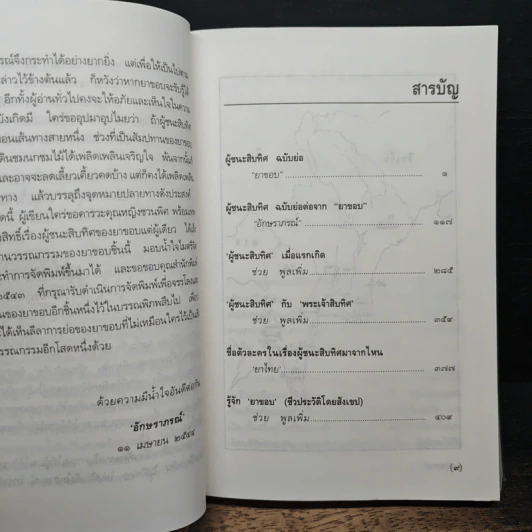 รณ์จึงกระทำได้อย่างยากยิ่ง แต่เพื่อให้เป็นไปตาม
ล่าวไว้ข้างต้นแล้ว ก็หวังว่าหากยาขอบจะรับรู้ได้
อีกทั้งผู้อ่านทั่วไปคงจะให้อภัยและเห็นใจในความ
บังเกิดมี ใคร่ขออุปมาอุปไมยว่า ถ้าผู้ชนะสิบทิศ
อนเส้นทางสายหนึ่ง ช่วงที่เป็นสัมปทานของยาขอบ
เดินชมนกชมไม้ได้เพลิดเพลินเจริญใจ พ้นจากนั้นก็
และอาจจะลดเลี้ยวเคี้ยวคดบ้าง แต่ก็คงได้เพลิดเพลิน
ทาง แล้วบรรลุถึงจุดหมายปลายทางดังประสงค์
ดนี้ ผู้เขียนใคร่ขอคารวะคุณหญิงชวนพิศ พร้อมทาย
สิทธิ์เรื่องผู้ชนะสิบทิศของยาขอบแต่ผู้เดียว ได้
านวรรณกรรมของยาขอบชิ้นนี้ มอบน้ำใจไมตรีจิต
ะทำการจัดพิมพ์ขึ้นมาได้ และขอขอบคุณสำนักพิมพ์
๒๕๔๓ ที่กรุณารับดำเนินการจัดพิมพ์เพื่อจรรโลง
นของยาขอบอีกชิ้นหนึ่งไว้ในบรรณพิภพสืบไป
ได้เห็นลีลาการย่อของยาขอบที่ไม่เหมือนใครไว้เป็น
รรณกรรมอีกโสดหนึ่งด้วย
ด้วยความมีน้ำใจอันดีต่อกัน
'อักษราภรณ์'
๑๑ เมษายน ๒๕๔๔
สารบัญ
ผู้ชนะสิบทิศ ฉบับย่อ
"ยาขอบ" ๑
ผู้ชนะสิบทิศ ฉบับย่อต่อจาก "ยาขอบ"
"อักษราภรณ์" ๑๑๗
'ผู้ชนะสิบทิศ' เมื่อแรกเกิด
ช่วย พูลเพิ่ม ๒๘๕
'ผู้ชนะสิบทิศ' กับ 'พระเจ้าสิบทิศ'
ช่วย พูลเพิ่ม ๓๕๙
ชื่อตัวละครในเรื่องผู้ชนะสิบทิศมาจากไหน
'ยาไทย' ๓๗๗
รู้จัก 'ยาขอบ' (ชีวประวัติโดยสังเขป)
ช่วย พูลเพิ่ม ๔๐๙
(๙)